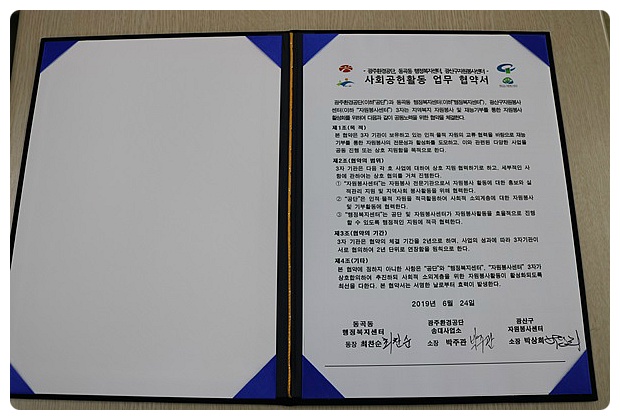 - 광주환경공단, 동곡동 행정복지센터, 광산구자원봉사센터 -
사회공헌활동 업무 협약서
광주환경공단(이하"공단")과 동곡동 행정복지센터(이하"행정복지센터"), 광산구자원봉사
센터(이하 "자원봉사센터") 3자는 지역복지 자원봉사 및 재능기부를 통한 자원봉사
활성화를 위하여 다음과 같이 공동노력을 위한 협약을 체결한다.
제1조(목 적)
본 협약은 3자 기관이 보유하고 있는 인적·물적 자원의 교류 협력을 바탕으로 재능
기부를 통한 자원봉사의 전문성과 활성화를 도모하고, 이와 관련된 다양한 사업을
공동 진행 또는 상호 지원함을 목적으로 한다.
제2조(협약의 범위)
3자 기관은 다음 각 호 사업에 대하여 상호 지원 협력하기로 하고, 세부적인 사
항에 관하여는 상호 협의를 거쳐 진행한다.
① "자원봉사센터"는 자원봉사 전문기관으로서 자원봉사 활동에 대한 홍보와 실
적관리 지원 및 지역사회 봉사활동을 위해 협력한다.
② "공단"은 인적·물적 자원을 적극활용하여 사회적 소외계층에 대한 자원봉사
및 기부활동에 협력한다.
③ "행정복지센터"는 공단 및 자원봉사센터가 자원봉사활동을 효율적으로 진행
할 수 있도록 행정적인 지원에 적극 협력한다.
제3조(협약의 기간)
3자 기관은 협약의 체결 기간을 2년으로 하며, 사업의 성과에 따라 3자기관이
서로 협의하여 2년 단위로 연장함을 원칙으로 한다.
제4조(기타)
본 협약에 정하지 아니한 사항은 "공단"와 "행정복지센터", "자원봉사센터" 3자가
상호합의하여 추진하되 사회적 소외계층을 위한 자원봉사활동이 활성화되도록
최선을 다한다. 본 협약서는 서명한 날로부터 효력이 발생한다.
2019년 6월 24일
동곡동
행정복지센터
동장 최찬순
광주환경공단
송대사업소
소장 박주관
광산구
자원봉사센터
소장 박상희